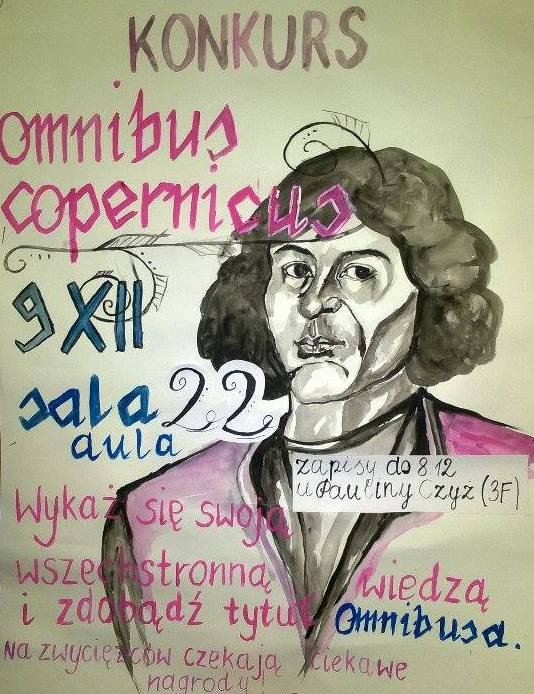 KONKURS
omnibus
copernicus
9 XII
sala 22
aula
zapisy do 8 12
u Pauliny Czyż (3F)
Wykaż się swoją
wszechstronną wiedzą
i zdobądź tytuł Omnibusa.
Na zwycięzców czekają ciekawe
nagrody